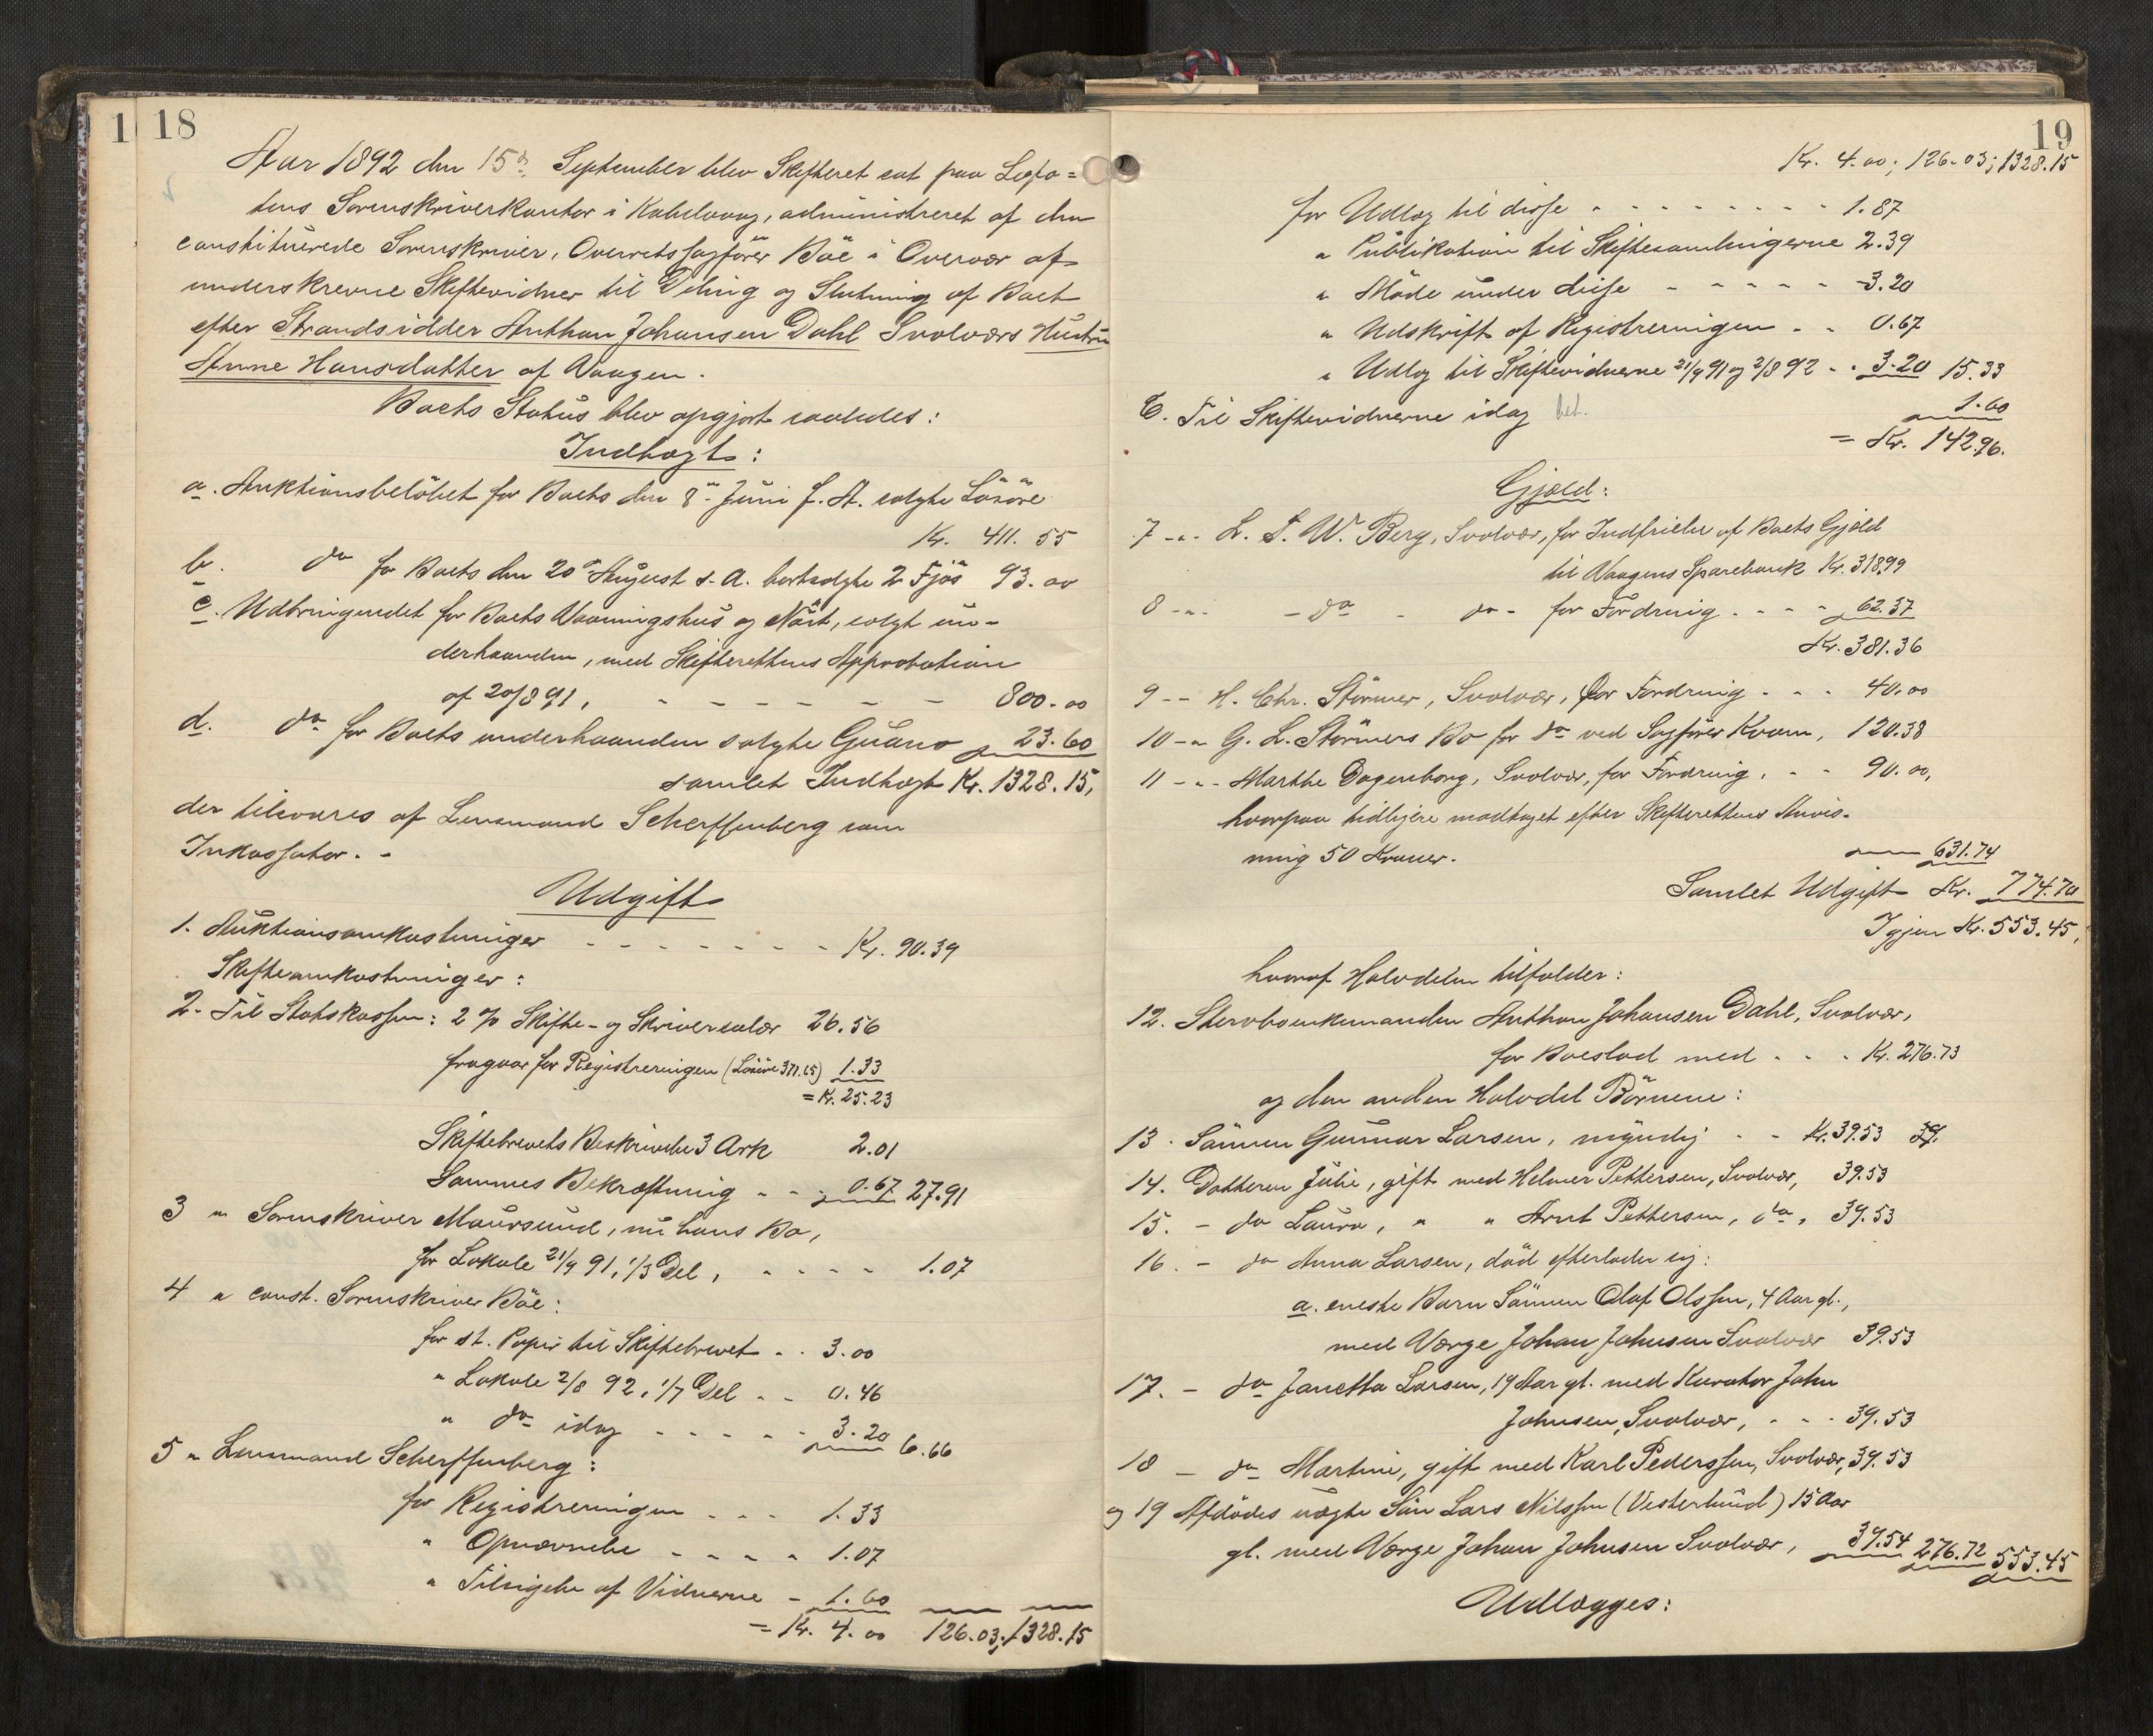 1 18
Aar 1892 den 15de September blev Skifteret sat paa Lofo=
tens Sorenskriverkontor i Kabelvaag, administreret af den
constituerede Sorenskriver, Overretssagfører Bøe i Overvær af
underskrevne Skiftevidner til Deling og Slutning af Boet
efter Strandsidder Anthon Johansen Dahl Svolværs Hustru
Anne Hansdatter af Vaagen.
Boets Status blev opgjort saaledes:
Indtægt:
a. Auktionsbeløbet for Boets den 8de Juni f. A. solgte Løsøre
Kr. 411.55
b. do for Boets den 20de August s. A. bortsolgte 2 Fjøs 93.00
c. Udbringendet for Boets Vaaningshus og Nøst, solgt un-
derhaanden, med Skifterettens Approbation
af 20/8 91, - - - - - - 800.00
d. do for Boets underhaanden solgte Guano 23.60
samlet Indtægt Kr. 1328.15,
der tilsvares af Lensmand Scherffenberg som
Inkassator. -
Udgift
1. Auktionsomkostninger - - - - - - - Kr. 90.39
Skifteomkostninger:
2. Til Statskassen: 2 % Skifte- og Skriversalær 26.56
fragaar for Registreringen (Løsøre 371.65) 1.33
= Kr. 25.23
Skiftebrevets Beskrivelse 3 Ark 2.01
Sammes Bekræftning - - 0.67 27.91
3 " Sorenskriver Maursund, nu hans Bo,
for Lokale 21/9 91, 1/3 Del, - - - - 1.07
4 " const. Sorenskriver Bøe:
for st. Papir til Skiftebrevet - - 3.00
" Lokale 2/8 92, 1/7 Del - - 0.46
" do idag - - - - - 3.20 6.66
5 " Lensmand Scherffenberg:
for Registreringen - - - 1.33
" Opnævnelse - - - - 1.07
" Tilsigelse af Vidnerne - 1.60
= Kr. 4.00 126.03; 1328.15
19
Kr. 4.00; 126.03; 1328.15
for Udlæg til disse - - - - - - - - 1.87
" Publikation til Skiftesamlingerne 2.39
" Møde under disse - - - - - 3.20
" Udskrift af Registreringen - - 0.67
" Udlæg til Skiftevidnerne 21/9 91 og 2/8 92 - - 3.20 15.33
6. Til Skiftevidnerne idag bet. 1.60
= Kr. 142.96.
Gjæld:
7 - " - L. I. W. Berg, Svolvær, for Indfrielse af Boets Gjæld
til Vaagens Sparebank Kr. 318.99
8 - " - - do - do - for Fordring - - - - 62.37
Kr. 381.36
9 - - H. Chr. Störmer, Svolvær, for Fordring - - - 40.00
10 - " G. L. Störmers Bo for do ved Sagfører Kvam, 120.38
11 - " - Marthe Dagenborg, Svolvær, for Fordring, - - 90.00,
hvorpaa tidligere modtaget efter Skifterettens Anvis-
ning 50 Kroner. 631.74
Samlet Udgift Kr. 774.70
Igjen Kr. 553.45,
hvoraf Halvdelen tilfalder:
12. Stervboenkemanden Anthon Johansen Dahl, Svolvær,
for Boeslod med - - - Kr. 276.73
og den anden Halvdel Børnene:
13. Sønnen Gunnar Larsen, myndig - - Kr. 39.53 39.
14. Datteren Julie, gift med Helmer Pettersen, Svolvær, 39.53
15. - do Laura, " " Arnt Pettersen, do, 39.53
16. - do Anna Larsen, død efterlader sig:
a. eneste Barn Sønnen Olaf Olssen, 4 Aar gl.,
med Værge Johan Johnsen Svolvær 39.53
17. - do Janetta Larsen, 19 Aar gl. med Kurator John
Johnsen, Svolvær, - - - 39.53
18 - do Martine, gift med Karl Pederssen, Svolvær, 39.53
og 19 Afdødes uægte Søn Lars Nilssen (Vesterlund) 15 Aar
gl. med Værge Johan Johnsen Svolvær, 39.54 276.72 553.45
Udlægges: